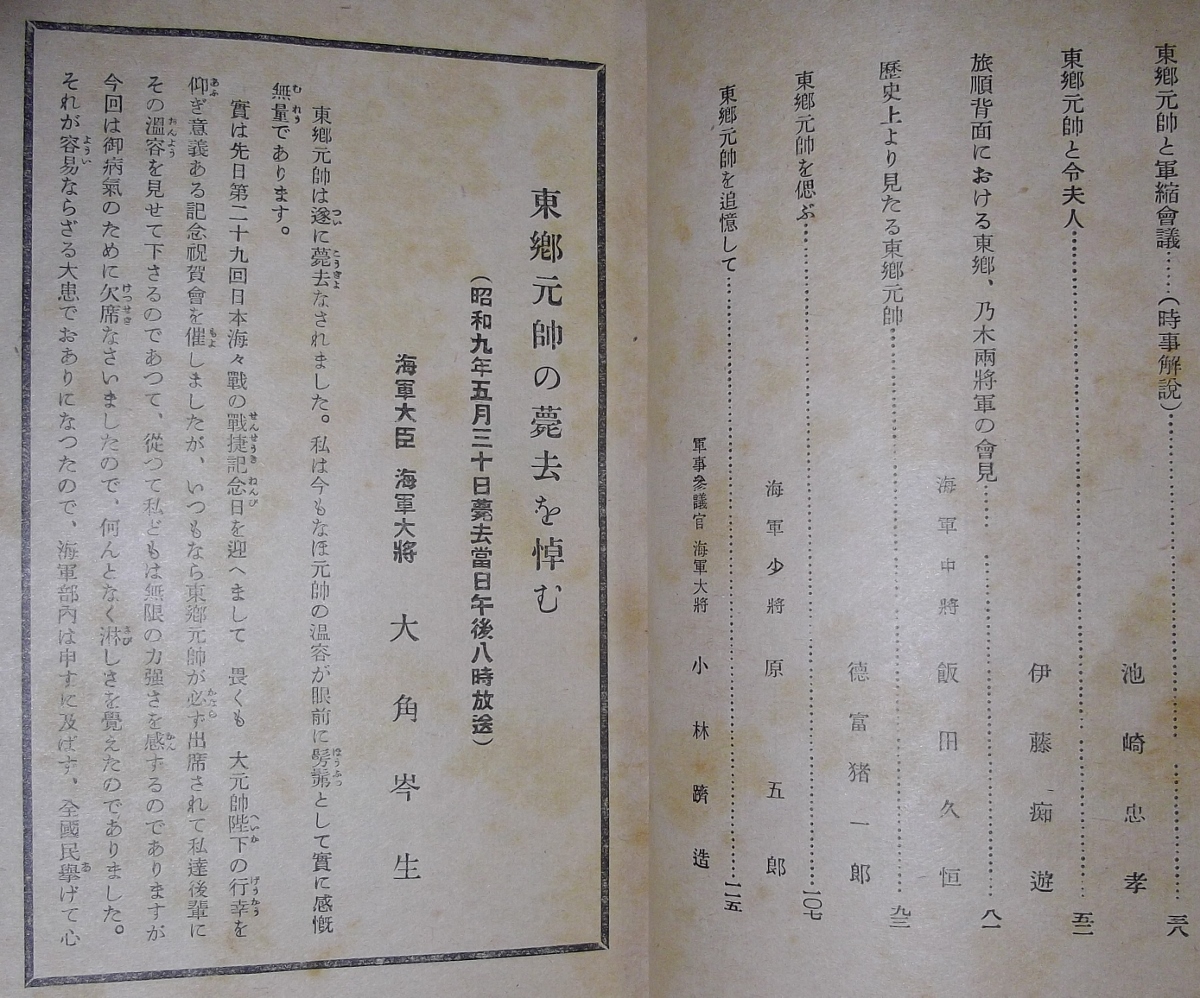 東鄕元帥と軍縮會議……(時事解說)……池崎忠孝 三八
東鄕元帥と令夫人……伊藤痴遊 五二
旅順背面における東鄕、乃木兩將軍の會見……海軍中將 飯田久恒 八一
歷史上より見たる東鄕元帥……德富猪一郎 九三
東鄕元帥を偲ぶ……海軍少將 原五郎 一〇七
東鄕元帥を追憶して……軍事參議官 海軍大將 小林躋造 一一五
東鄕元帥の薨去を悼む
(昭和九年五月三十日薨去當日午後八時放送)
海軍大臣 海軍大將 大角岑生
東鄕元帥は遂に薨去なされました。私は今もなほ元帥の温容が眼前に髣髴として實に感慨
無量であります。
實は先日第二十九回日本海々戰の戰捷記念日を迎へまして 畏くも 大元帥陛下の行幸を
仰ぎ意義ある記念祝賀會を催しましたが、いつもなら東鄕元帥が必ず出席されて私達後輩に
その溫容を見せて下さるのであつて、從つて私どもは無限の力强さを感ずるのでありますが
今回は御病氣のために欠席なさいましたので、何んとなく淋しさを覺えたのでありました。
それが容易ならざる大患でおありになつたので、海軍部內は申すに及ばず、全國民擧げて心